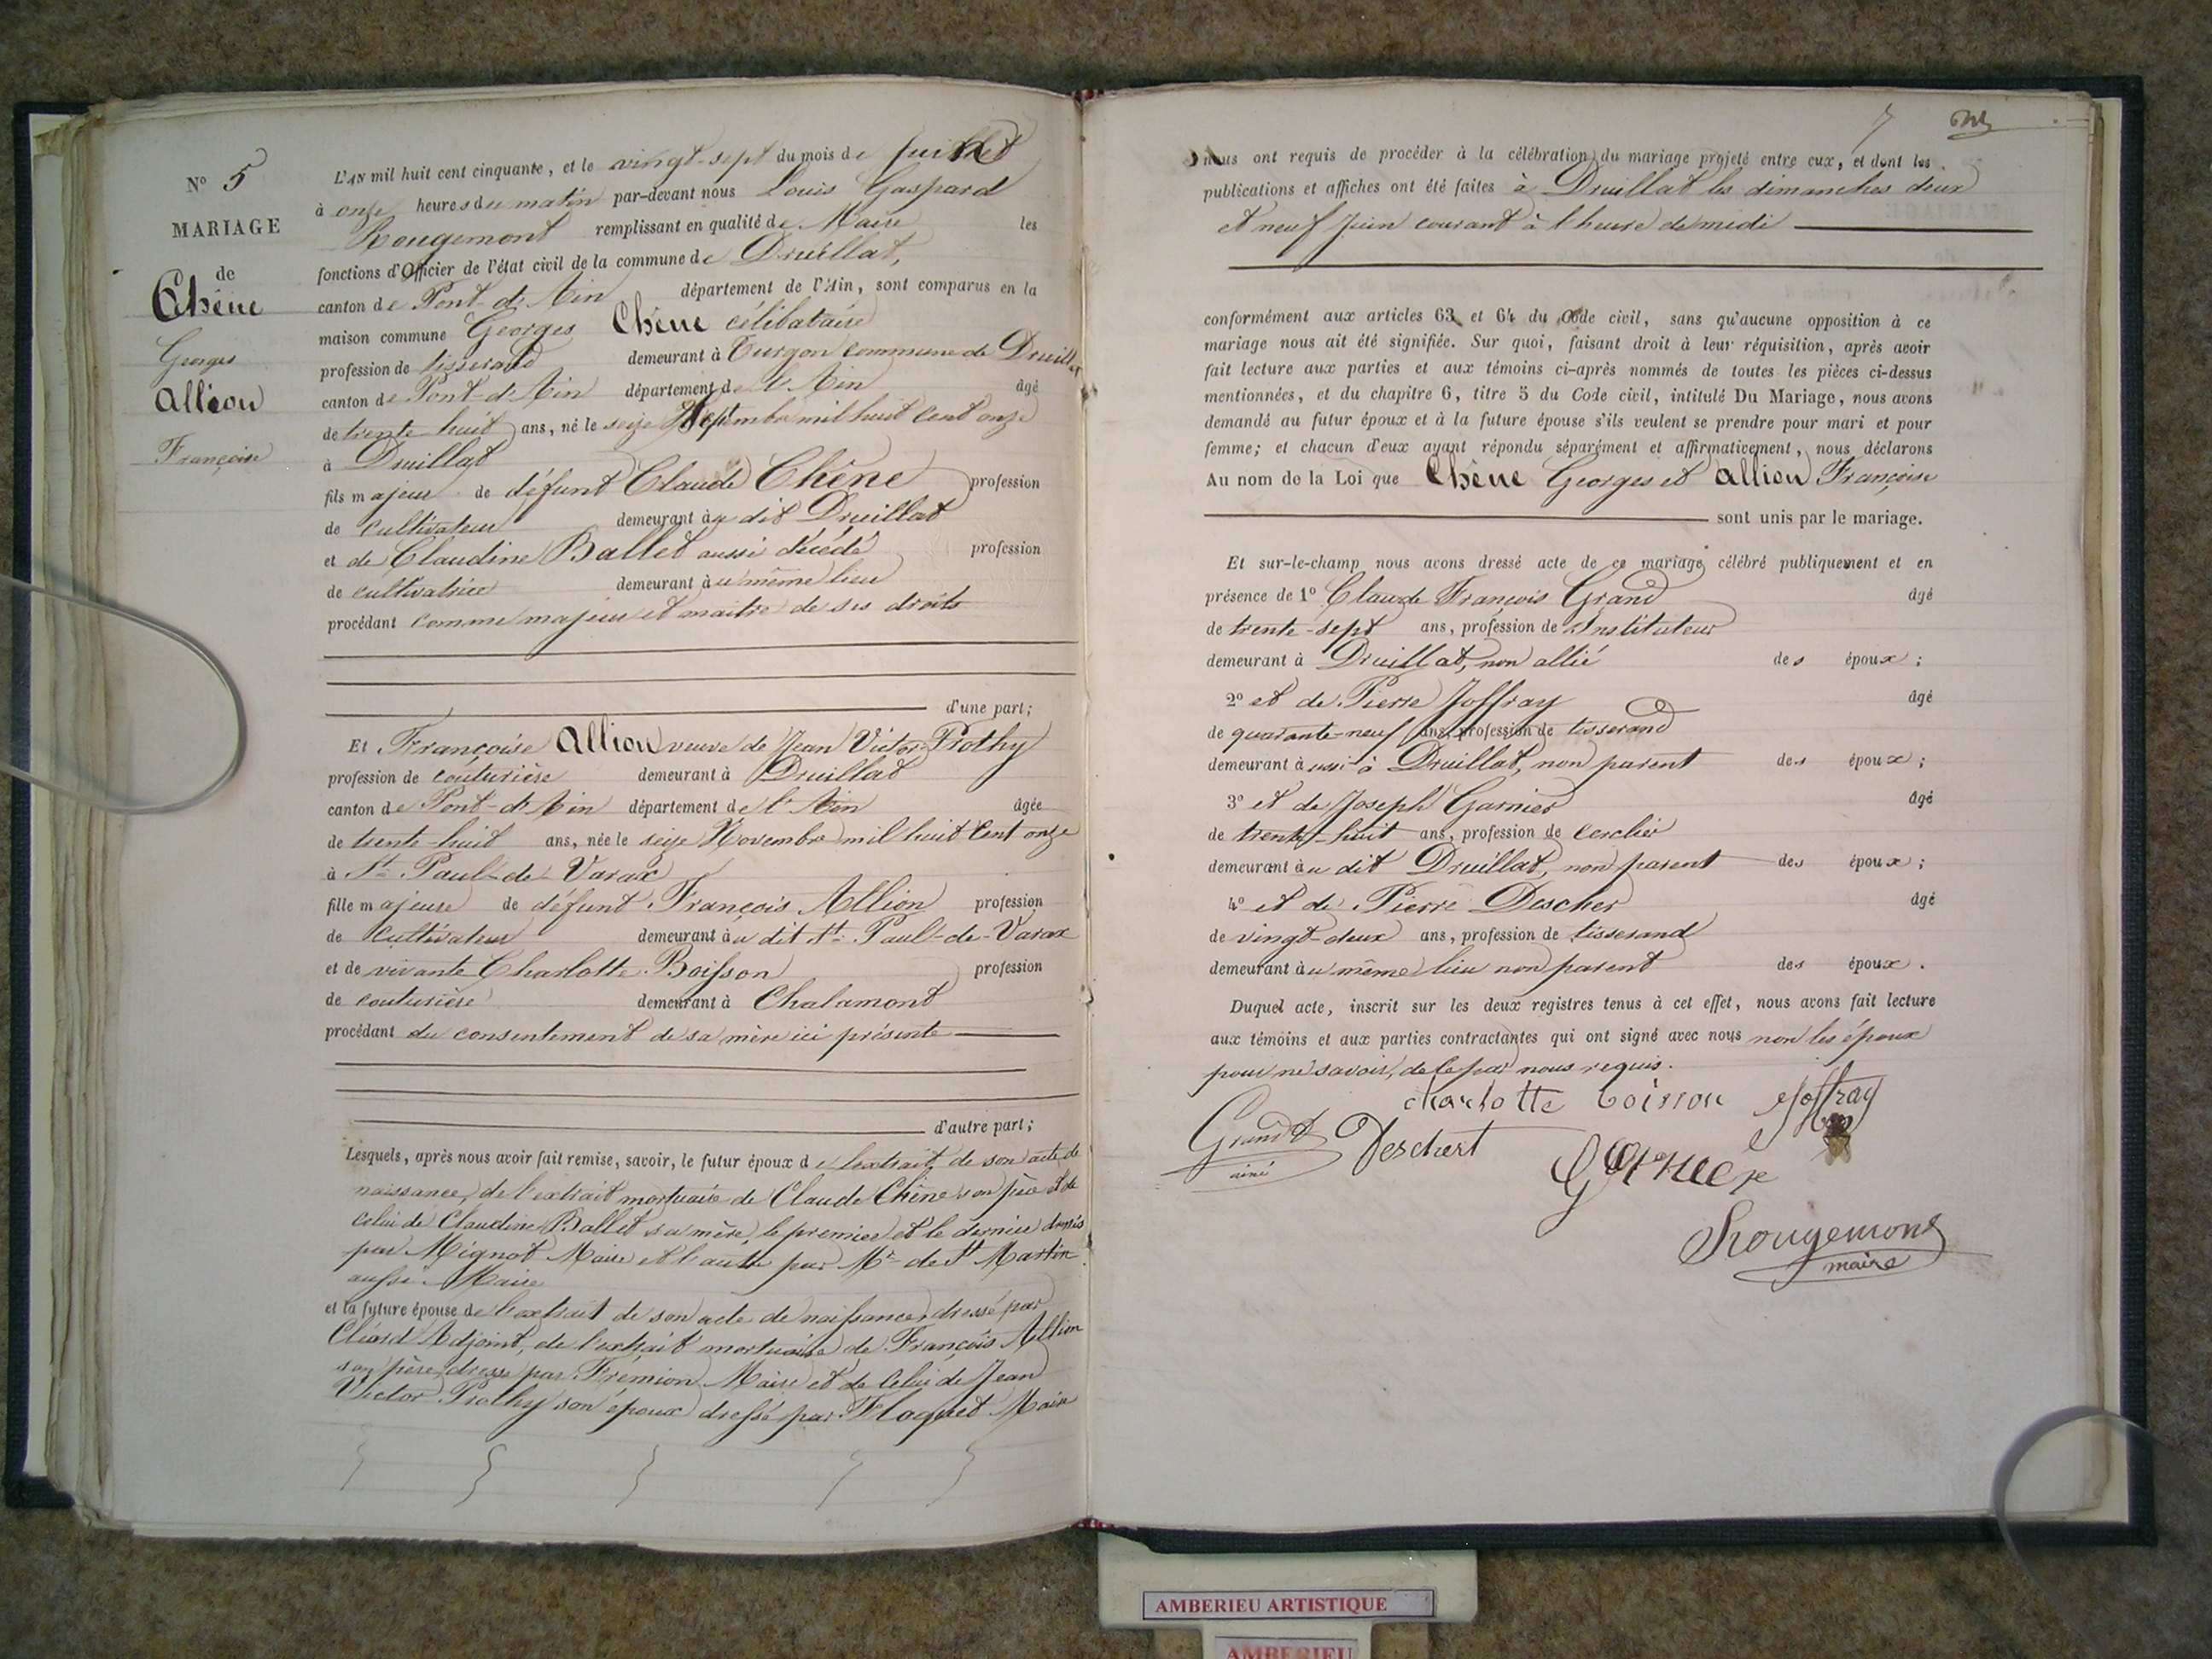 N° 5
MARIAGE
de
Chêne
Georges
Allion
Françoise
L'AN mil huit cent cinquante, et le vingt-sept du mois de
à onze heures du matin par-devant nous Louis Gaspard
Rougemont remplissant en qualité de Maire les
fonctions d'Officier de l'état civil de la commune de Druillat,
canton de Pont-d'Ain département de l'Ain, sont comparus en la
maison commune Georges Chêne célibataire
profession de tisserand demeurant à Turgon commune de Druillat
canton de Pont-d'Ain département de l'Ain âgé
de trente-huit ans, né le seize Septembre mil huit cent onze
à Druillat
fils majeur de défunt Claude Chêne profession
de cultivateur demeurant au dit Druillat
et de Claudine Ballet aussi décédé profession
de cultivatrice demeurant au même lieu
procédant comme majeur et maitre de ses droits
d'une part;
Et Françoise Allion veuve de Jean Victor Prothy
profession de couturière demeurant à Druillat
canton de Pont-d'Ain département de l'Ain âgée
de trente-huit ans, née le seize Novembre mil huit Cent onze
à St Paul-de-Varax
fille majeure de défunt François Allion profession
de cultivateur demeurant au dit St Paul-de-Varax
et de vivante Charlotte Boisson profession
de couturière demeurant à Chalamont
procédant du consentement de sa mère ici présente
d'autre part;
Lesquels, après nous avoir fait remise, savoir, le futur époux de l'extrait de son acte de
naissance, de l'extrait mortuaire de Claude Chêne son père et de
celui de Claudine Ballet sa mère, le premier et le dernier
par Mignot Maire et l'autre par Mr de St Martin
aussi Maire
et la future épouse de l'extrait de son acte de naissance, dressé par
Adjoint, de l'extrait mortuaire de François Allion
son père, dressé par Fremion Maire et de celui de Jean
Victor Prothy son époux dressé par Floquet Maire
nous ont requis de procéder à la célébration du mariage projeté entre eux, et dont les
publications et affiches ont été faites à Druillat les dimanches deux
et neuf juin courant à l'heure de midi
conformément aux articles 63 et 64 du Code civil, sans qu'aucune opposition à ce
mariage nous ait été signifiée. Sur quoi, faisant droit à leur réquisition, après avoir
fait lecture aux parties et aux témoins ci-après nommés de toutes les pièces ci-dessus
mentionnées, et du chapitre 6, titre 5 du Code civil, intitulé Du Mariage, nous avons
demandé au futur époux et à la future épouse s'ils veulent se prendre pour mari et pour
femme; et chacun d'eux ayant répondu séparément et affirmativement, nous déclarons
Au nom de la Loi que Chêne Georges et Allion Françoise
sont unis par le mariage.
Et sur-le-champ nous avons dressé acte de ce mariage célébré publiquement et en
présence de 1° Claude François Grand âgé
de trente-sept ans, profession de Instituteur
demeurant à Druillat, non allié des époux;
2° et de Pierre Joffray âgé
de quarante-neuf ans, profession de tisserand
demeurant aussi à Druillat, non parent des époux;
3° et de Joseph Garnier âgé
de trente-huit ans, profession de cerclier
demeurant au dit Druillat, non parent des époux;
4° et de Pierre Descher âgé
de vingt-deux ans, profession de tisserand
demeurant au même lieu non parent des époux.
Duquel acte, inscrit sur les deux registres tenus à cet effet, nous avons fait lecture
aux témoins et aux parties contractantes qui ont signé avec nous non les époux
pour ne savoir, de ce par nous requis.
charlotte boisson Joffray
Grand
ainé
Deschert
Garnier
Rougemont
maire
AMBERIEU ARTISTIQUE
AMBERIEU